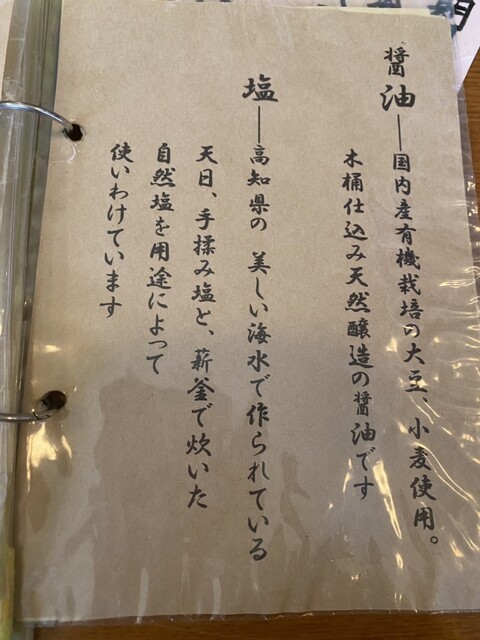 醤油―国内産有機栽培の大豆、小麦使用。
木桶仕込み天然醸造の醤油です
塩―高知県の 美しい海水で作られている
天日、手揉み塩と、薪釜で炊いた
自然塩を用途によって
使いわけています